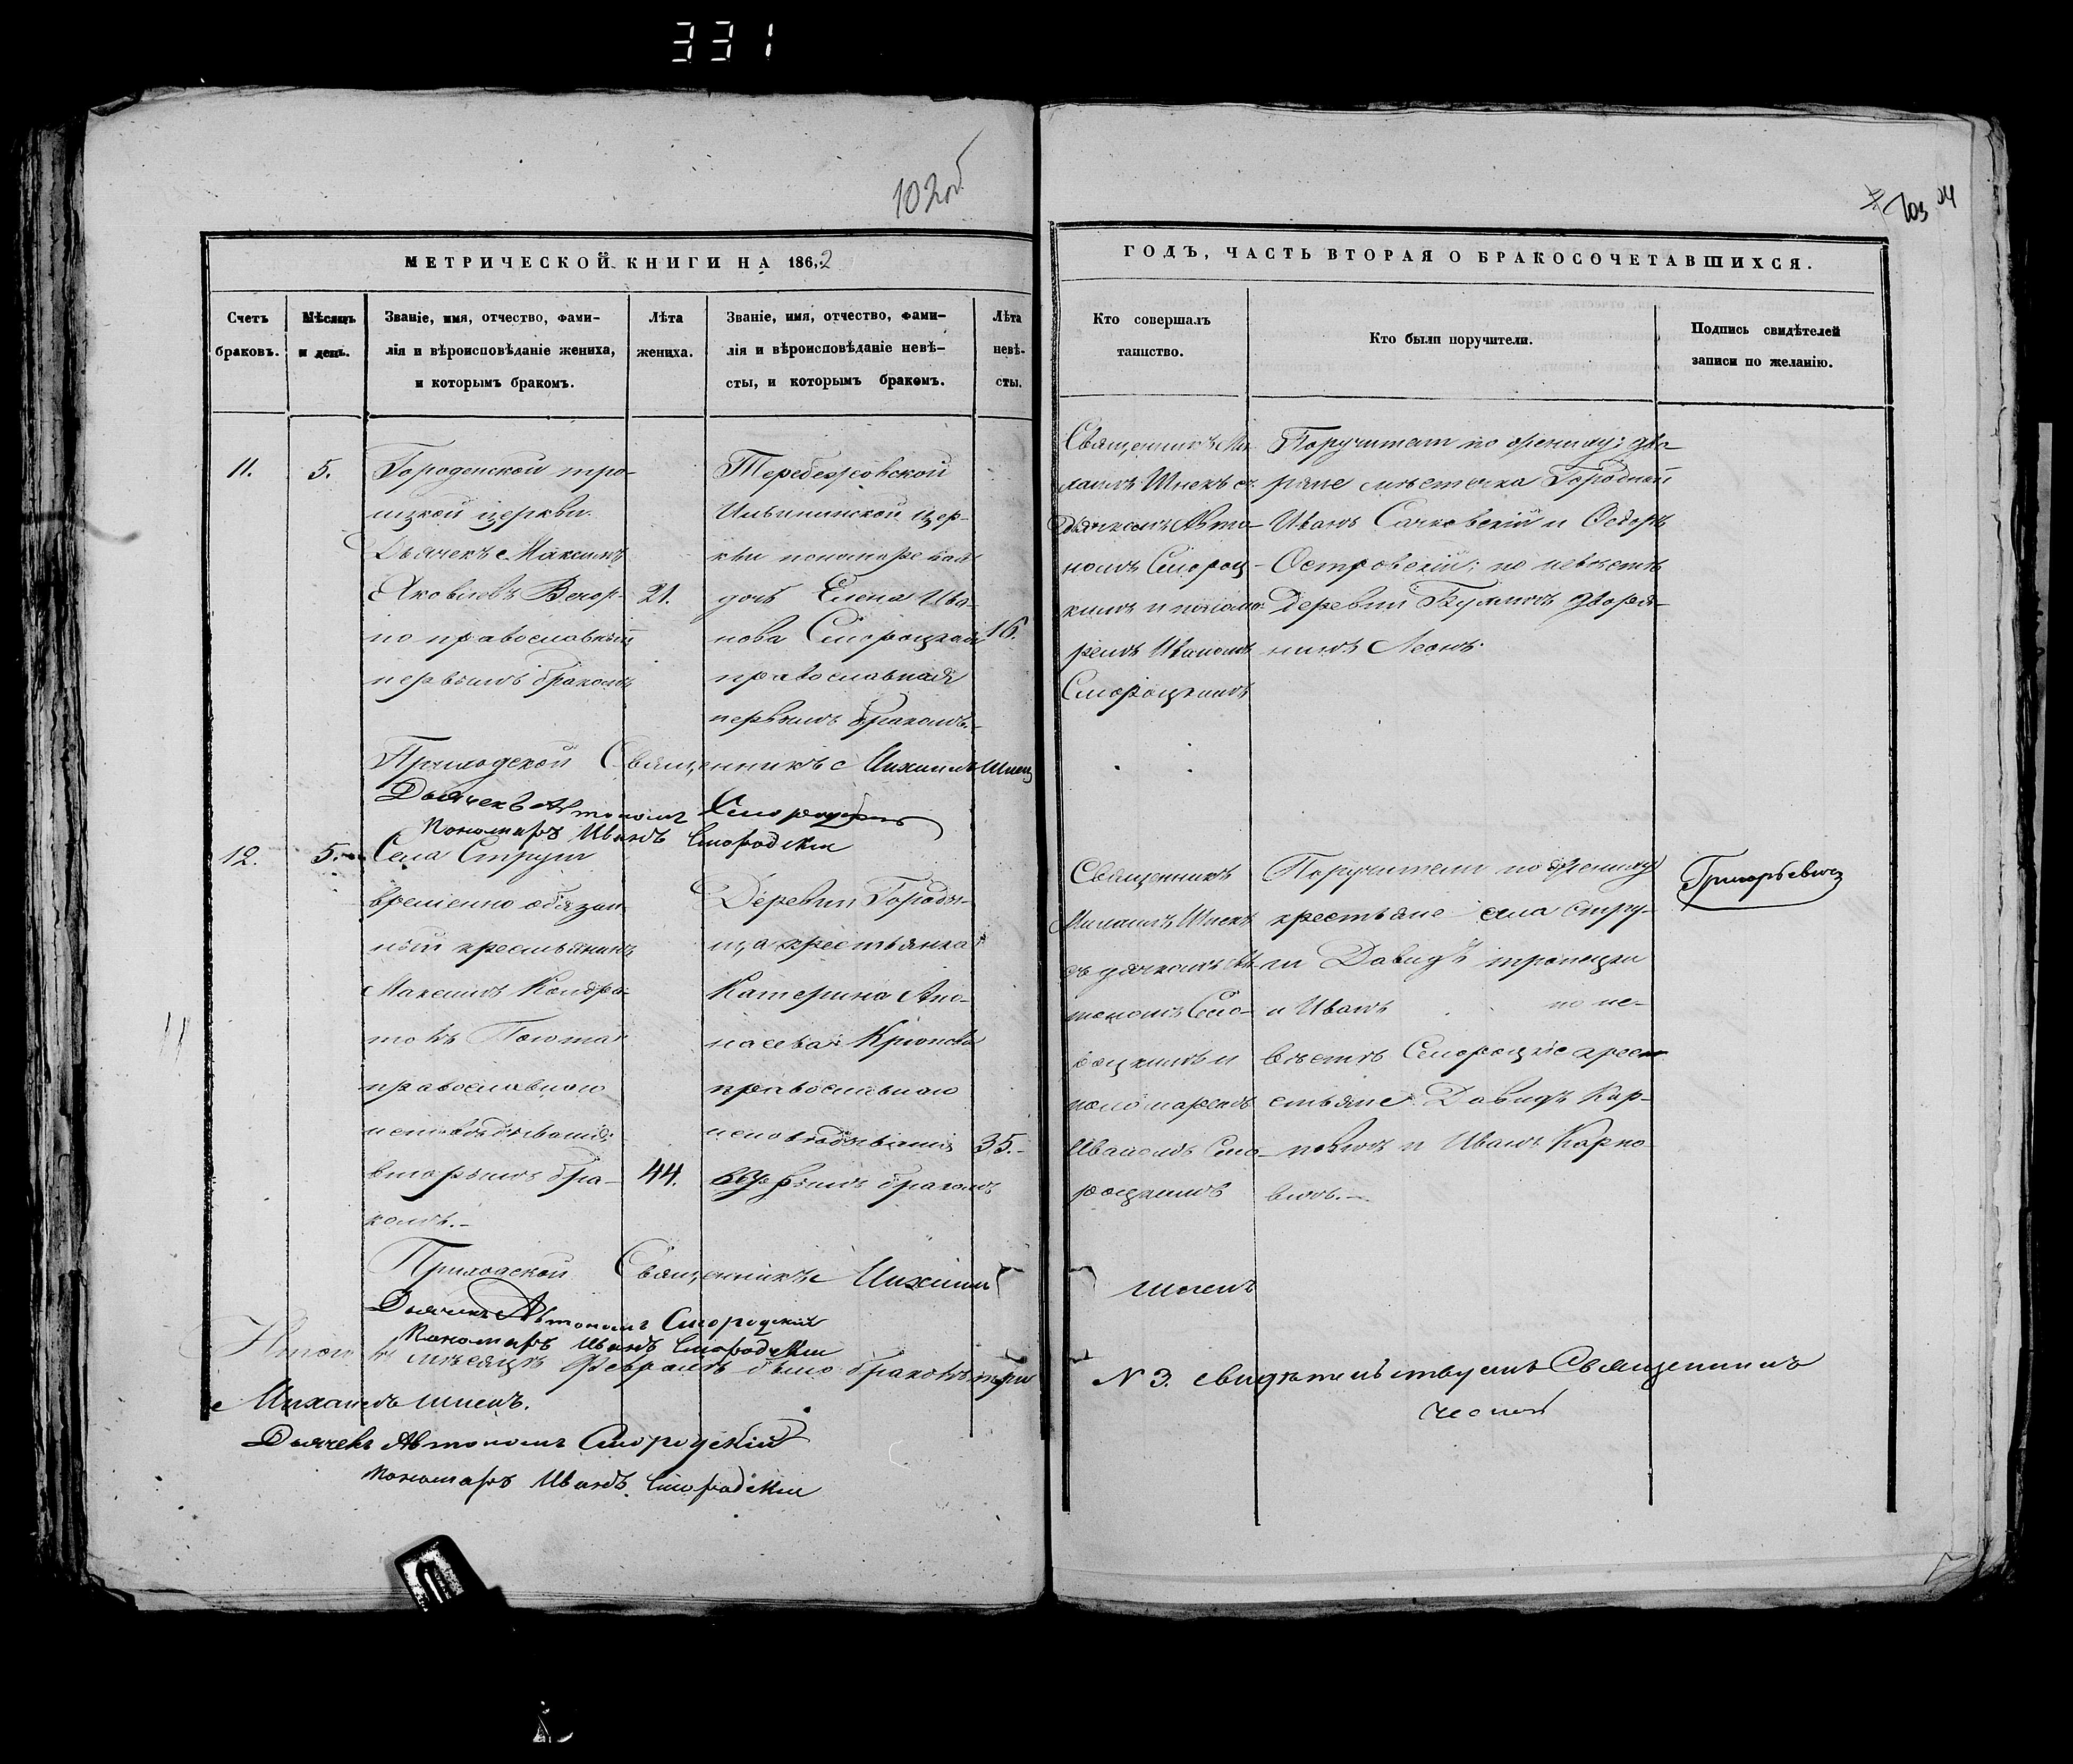 331
102об
103
МЕТРИЧЕСКОЙ КНИГИ НА 1862
ГОДЪ, ЧАСТЬ ВТОРАЯ О БРАКОСОЧЕТАВШИХСЯ.
Счетъ браковъ.
Мѣсяцъ и день.
Званіе, имя, отчество, фами-
лія и вѣроисповѣданіе жениха,
и которымъ бракомъ.
Лѣта жениха.
Званіе, имя, отчество, фами-
лія и вѣроисповѣданіе невѣ-
сты, и которымъ бракомъ.
Лѣта невѣ-
сты.
Кто совершалъ
таинство.
Кто были поручители.
Подпись свидѣтелей
записи по желанію.
11.
5.
Городенской тро-
ицкой церкви
Дьячекъ Максимъ
Яковлевъ
православный
первымъ бракомъ
21.
Теребежовской
Ильинской цер-
кви пономаря
дочь Елена Ива-
нова Смородская
православная
первымъ бракомъ.
16.
Священникъ Ми-
хаилъ Шнекъ съ
Дьячкомъ Авто-
номъ Смород-
кимъ и понама-
ремъ Иваномъ
Смородскимъ
Поручители по жениху: дво-
ряне мѣстечка Городной
Иванъ Сачковскій и Ѳедоръ
Островскій; по невѣстѣ
деревни дворя-
нинъ Леонъ.
Приходской Священникъ Михаилъ Шнекъ
Дьячекъ Автономъ
Пономарь Иванъ Смородскій
12.
5.
Села Струги
временно обязан-
ный крестьянинъ
Максимъ Кондра-
товъ
православнаго
исповѣдыванія
вторымъ бра-
комъ.
44.
Деревни Городи-
ща крестьянка
Катерина Апа-
насева
православнаго
исповѣдыванія
бракомъ
35.
Священникъ
Михаилъ Шнекъ
съ дячкомъ Ав-
тономъ Смо-
родскимъ и
пономаремъ
Иваномъ Смо-
родскимъ
Поручители по жениху
крестьяне села Стру-
ги Давидъ
и Иванъ по не-
вѣстѣ кре-
стьяне Давидъ Кар-
повичъ и Иванъ Карпо-
вичъ.
Григорьевичъ
Приходской Священникъ Михаилъ
Шнекъ
Дьячекъ Автономъ Смородскій
Пономарь Иванъ Смородскій
Итого въ мѣсяцѣ Февралѣ было браковъ три
N 3. свидѣтельствуетъ Священникъ
Михаилъ Шнекъ.
Дьячекъ Автономъ Смородскій
Пономарь Иванъ Смородскій